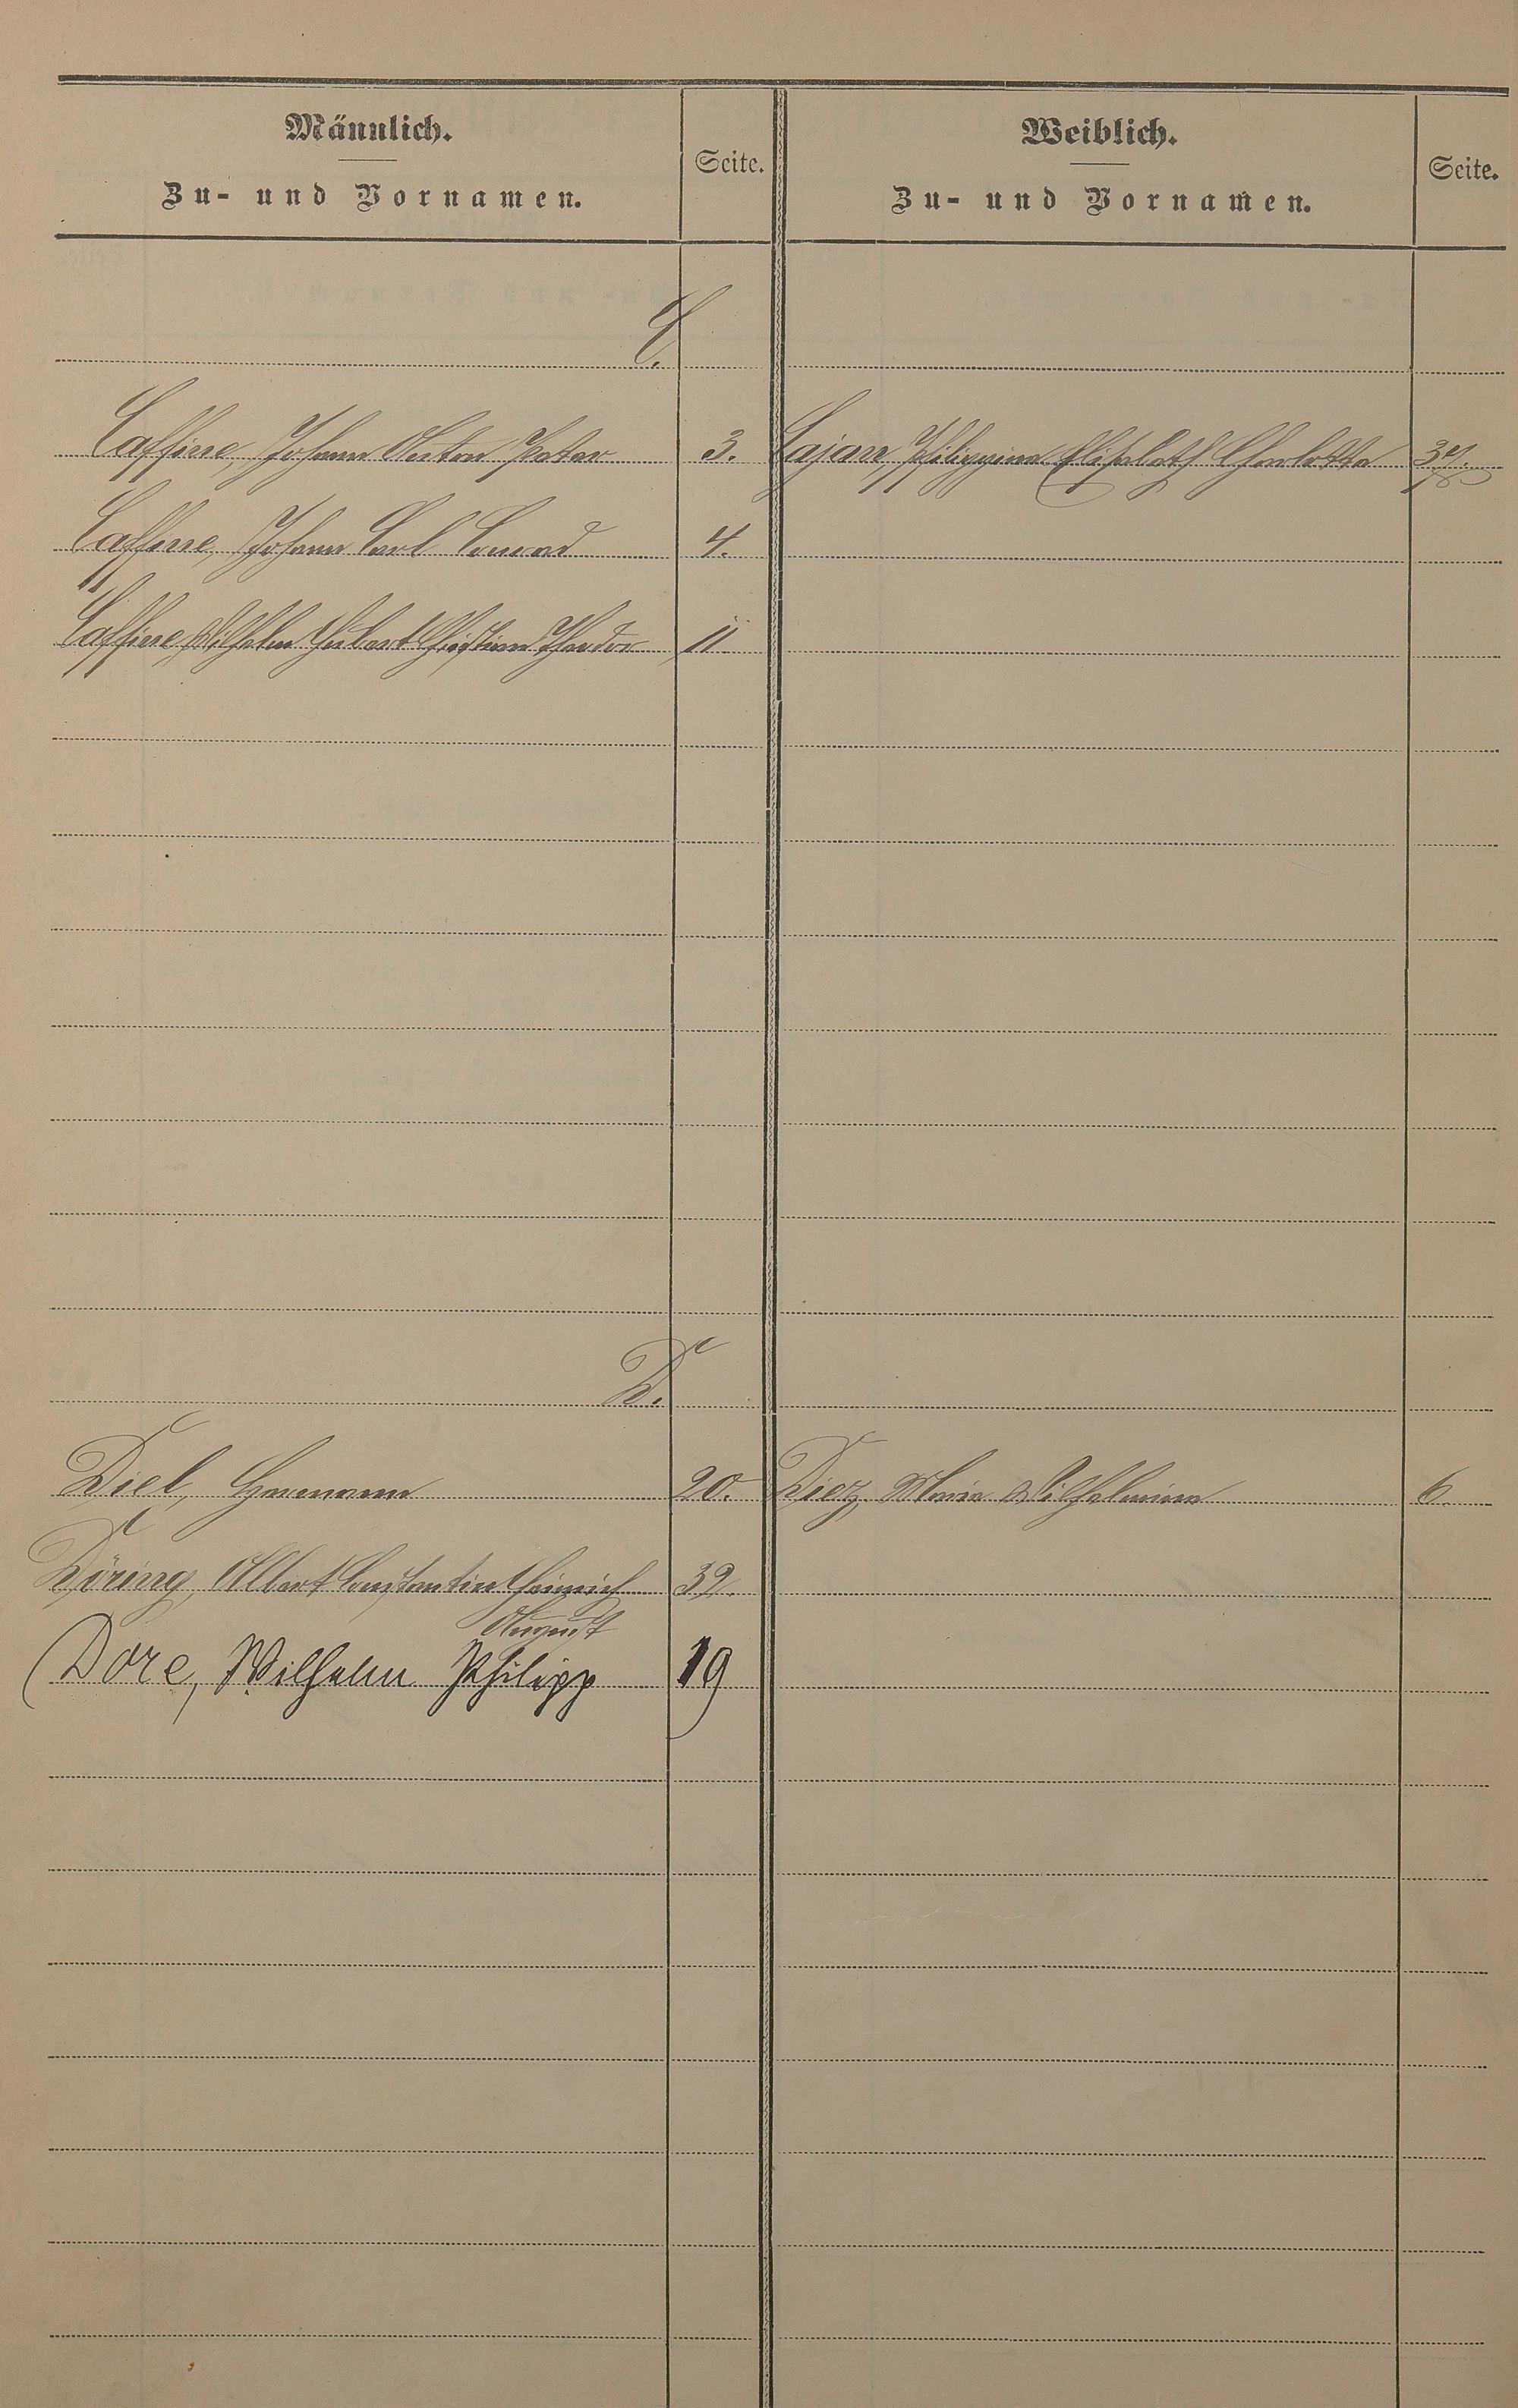 Männlich.
Zu- und Vornamen.
Seite.
Weiblich.
Zu- und Vornamen.
Seite.
C.
Caffine, Johann Anton Peter 3.
Cajan, Philippine Elisabeth Charlotte 37.
Caffine, Johann Carl Conrad 4.
Caffine, Wilhelm Hubert Christian Theodor 11
D.
Diel, Hermann 20.
Diez, Marie Wilhelmine 6.
Döring, Albert Constantin Heinrich 32.
August
Dore, Wilhelm Philipp 19